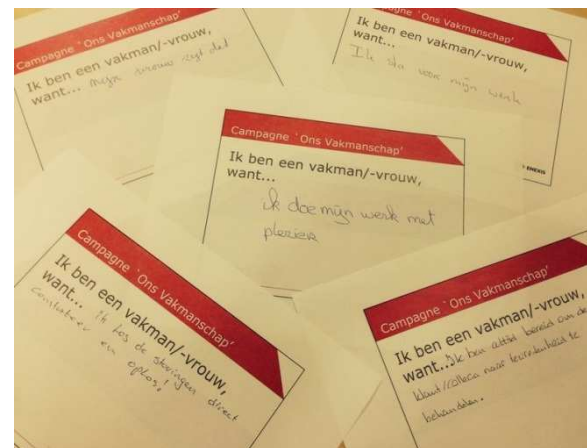 Campagne 'Ons Vakmanschap'
Ik ben een vakman/-vrouw,
want... mijn vrouw zegt dat
Campagne 'Ons Vakmanschap'
Ik ben een vakman/-vrouw,
want...
Ik sta voor mijn werk
ENEXIS
Campagne 'Ons Vakmanschap'
Ik ben een vakman/-vrouw,
want...
ik doe mijn werk met
plezier
Campagne 'Ons Vakmanschap'
Ik ben een vakman/-vrouw,
want... ik los de storingen direct
een oplos!
Campagne 'Ons Vakmanschap'
Ik ben een vakman/-vrouw,
want... Ik ben altijd bereid om de
klant/collega naar tevredenheid te
behandelen.